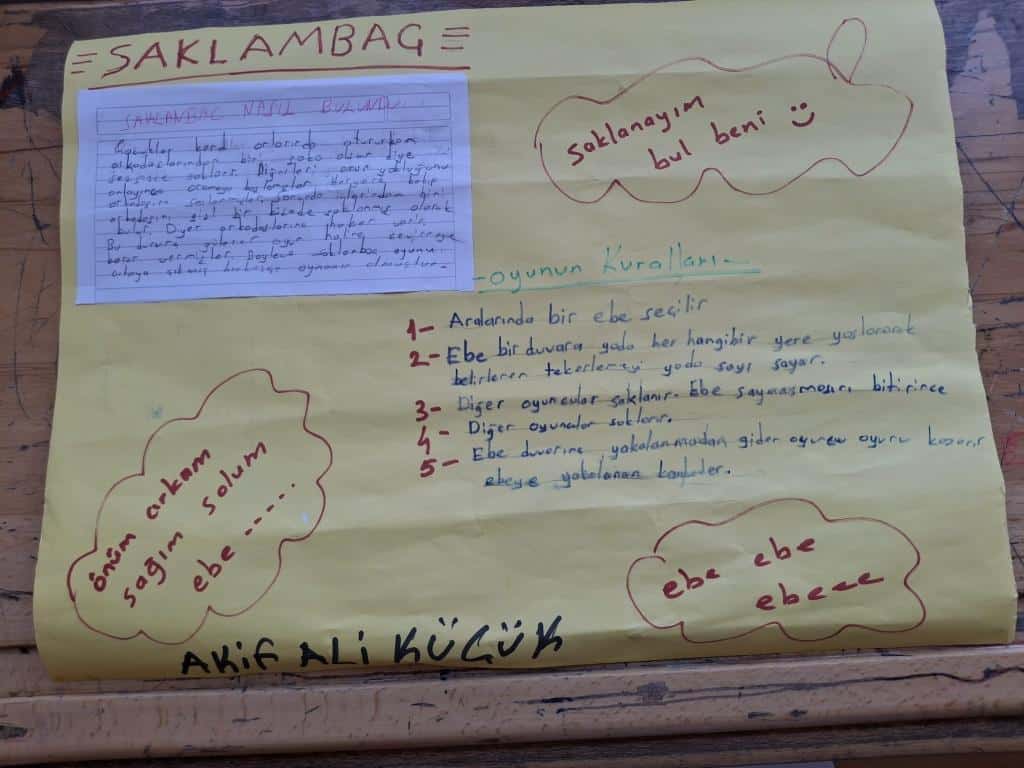 SAKLAMBAG
SAKLANBAC NASIL BULUNDU
Çocuklar kendi aralarında otururken
arkadaşlarından biri şaka olsun diye
sessizce saklanır. Diğerleri, onun yokluğunu
anlayınca aramaya başlamışlar. Her yere bakıp
arkadaşını
arkadaşını gizli bir köşede saklanmış olarak
bulur. Diğer arkadaşlarına haber verir
Bu duruma
karar vermişler Böylece saklanbaç oyunu
ortaya çıkmış
saklanayım
bul beni
-oyunun Kuralları-
1- Aralarında bir ebe seçilir
2- Ebe bir duvara yada her hangibir yere yaslanarak
belirlenen tekerlemeyi yada sayı sayar.
3- Diğer oyuncular saklanır. Ebe saymasını bitirince
4- Diğer oyuncular saklanır.
5- Ebe duvarına yakalanmadan gider oyuncu oyunu kazanır
ebeye yakalanan kaybeder.
önüm arkam
sağım solum
ebe -----.
ebe ebe
ebeee
AKİF ALİ KÜÇÜK